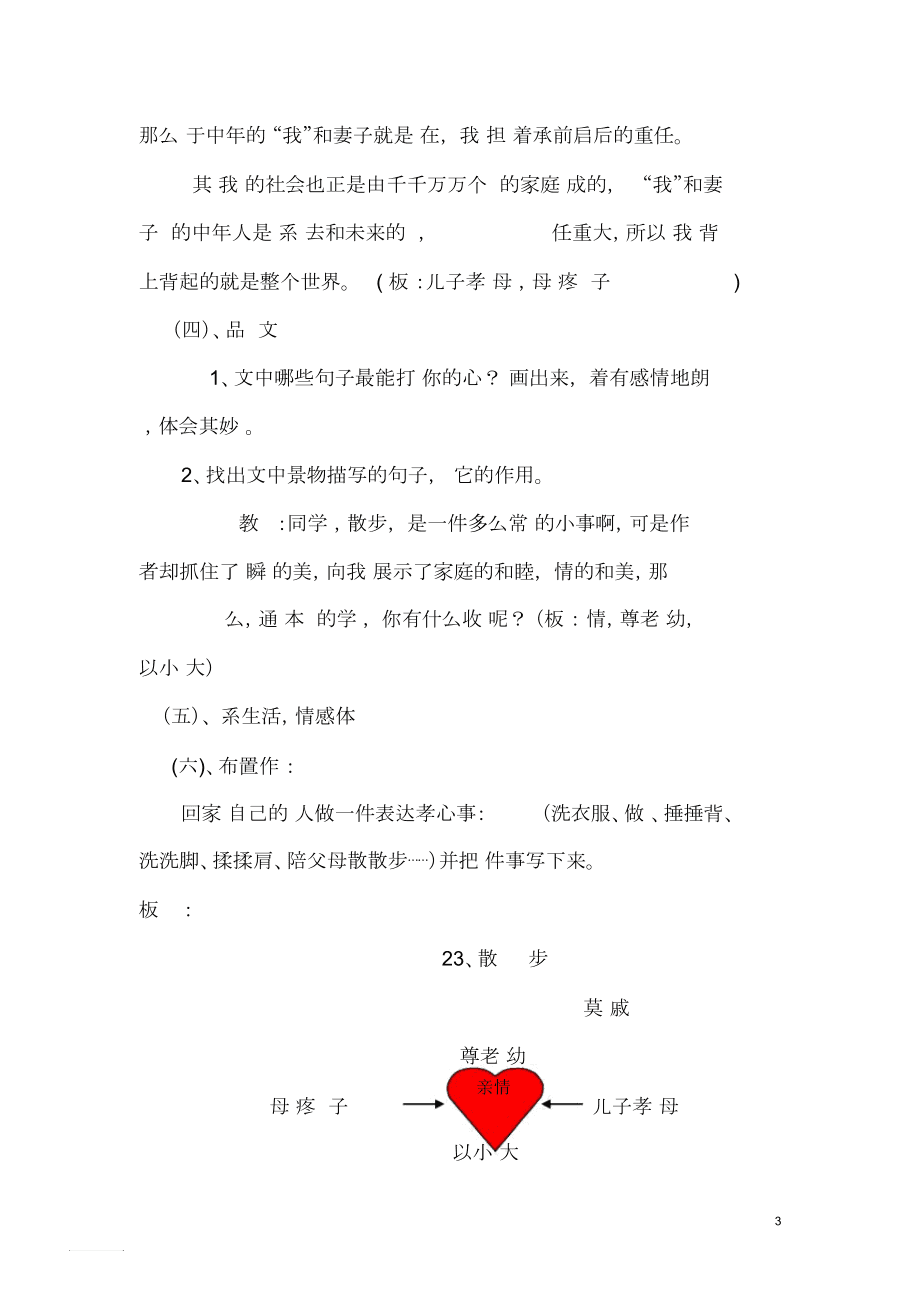 那么 于中年的“我”和妻子就是 在, 我 担 着承前启后的重任。
其 我 的社会也正是由千千万万个 的家庭 成的, “我”和妻
子 的中年人是 系 去和未来的 , 任重大,所以 我 背
上背起的就是整个世界。 ( 板 :儿子孝 母 , 母 疼 子 )
（四）、品 文
1、文中哪些句子最能打 你的心？ 画出来, 着有感情地朗
,体会其妙 。
2、找出文中景物描写的句子, 它的作用。
教 :同学 ,散步, 是一件多么常 的小事啊,可是作
者却抓住了 瞬 的美,向我 展示了家庭的和睦, 情的和美,那
么,通 本 的学 , 你有什么收 呢？（板 : 情,尊老 幼,
以小 大）
（五）、系生活,情感体
(六)、布置作 :
回家 自己的 人做一件表达孝心事: （洗衣服、做 、捶捶背、
洗洗脚、揉揉肩、陪父母散散步……）并把 件事写下来。
板 :
23、散 步
莫 戚
尊老 幼
亲情
母 疼 子 儿子孝 母
以小 大
3